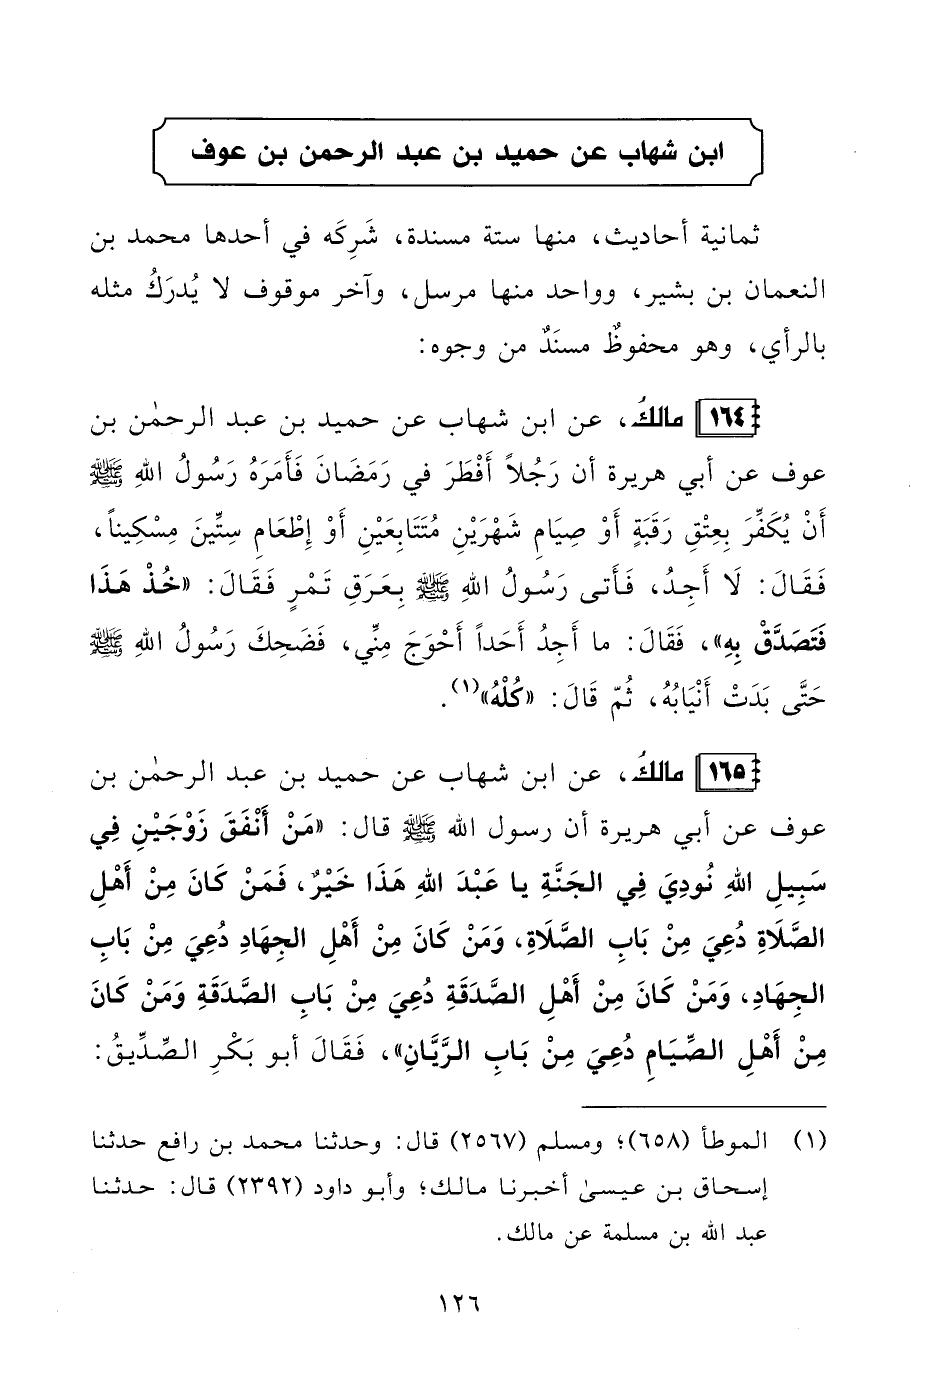 ابن شهاب عن حميد بن عبد الرحمن بن عوف
ثمانية أحاديث، منها ستة مسندة، شَرِكَه في أحدها محمد بن
النعمان بن بشير، وواحد منها مرسل، وآخر موقوف لا يُدرَكُ مثله
بالرأي، وهو محفوظٌ مسنَدٌ من وجوه:
١٦٤ مالكُ، عن ابن شهاب عن حميد بن عبد الرحمٰن بن
عوف عن أبي هريرة أن رَجُلاً أَفْطَرَ في رَمَضَانَ فَأَمَرَهُ رَسُولُ اللهِ ﷺ
أَنْ يُكَفِّرَ بِعِتْقِ رَقَبَةٍ أَوْ صِيَامِ شَهْرَيْنِ مُتَتَابِعَيْنِ أَوْ إِطْعَامِ سِتِّينَ مِسْكِيناً،
فَقَالَ: لَا أَجِدُ، فَأتى رَسُولُ اللهِ ﷺ بِعَرَقِ تَمْرٍ فَقَالَ: «خُذْ هَذَا
فَتَصَدَّقْ بِهِ»، فَقَالَ: ما أَجِدُ أَحَداً أَحْوَجَ مِنِّي، فَضَحِكَ رَسُولُ اللهِ ﷺ
حَتَّى بَدَتْ أَنْيَابُهُ، ثُمّ قَالَ: «كُلْهُ»(١).
١٦٥ مالكُ، عن ابن شهاب عن حميد بن عبد الرحمٰن بن
عوف عن أبي هريرة أن رسول الله ﷺ قال: «مَنْ أَنْفَقَ زَوْجَيْنِ فِي
سَبِيلِ اللهِ نُودِيَ فِي الجَنَّةِ يا عَبْدَ اللهِ هَذَا خَيْرٌ، فَمَنْ كَانَ مِنْ أَهْلِ
الصَّلَاةِ دُعِيَ مِنْ بَابِ الصَّلَاةِ، وَمَنْ كَانَ مِنْ أَهْلِ الجِهَادِ دُعِيَ مِنْ بَابِ
الجِهَادِ، وَمَنْ كَانَ مِنْ أَهْلِ الصَّدَقَةِ دُعِيَ مِنْ بَابِ الصَّدَقَةِ وَمَنْ كَانَ
مِنْ أَهْلِ الصِّيَامِ دُعِيَ مِنْ بَابِ الرَّيَّانِ»، فَقَالَ أبو بَكْرِ الصِّدِّيقُ:
(١) الموطأ (٦٥٨)؛ ومسلم (٢٥٦٧) قال: وحدثنا محمد بن رافع حدثنا
إسحاق بن عيسىٰ أخبرنا مالك؛ وأبو داود (٢٣٩٢) قال: حدثنا
عبد الله بن مسلمة عن مالك.
١٢٦